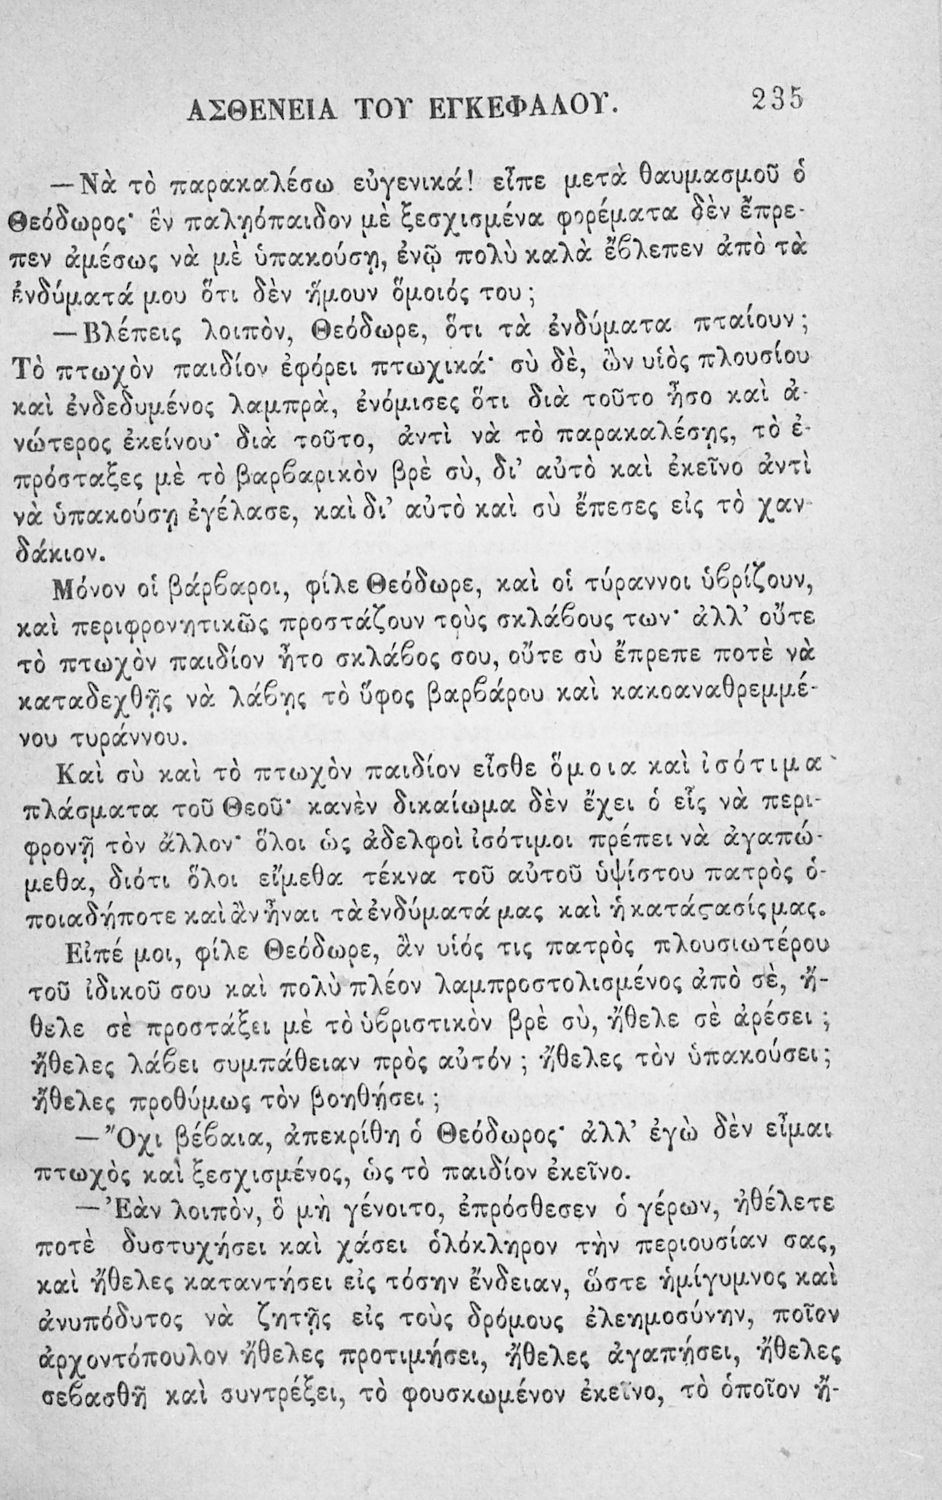 ΑΣΘΕΝΕΙΑ ΤΟΥ ΕΓΚΕΦΑΛΟΥ. 235
—Νὰ τὸ παρακαλέσω εὐγενικά! εἶπε μετὰ θαυμασμοῦ ὁ
Θεόδωρος· ἓν παληόπαιδον μὲ ξεσχισμένα φορέματα δὲν ἔπρε-
πεν ἀμέσως νὰ μὲ ὑπακούσῃ, ἐνῷ πολὺ καλὰ ἔβλεπεν ἀπὸ τὰ
ἐνδύματά μου ὅτι δὲν ἤμουν ὅμοιός του;
—Βλέπεις λοιπὸν, Θεόδωρε, ὅτι τὰ ἐνδύματα πταίουν;
Τὸ πτωχὸν παιδίον ἐφόρει πτωχικά· σὺ δὲ, ὢν υἱὸς πλουσίου
καὶ ἐνδεδυμένος λαμπρὰ, ἐνόμισες ὅτι διὰ τοῦτο ἦσο καὶ ἀ-
νώτερος ἐκείνου· διὰ τοῦτο, ἀντὶ νὰ τὸ παρακαλέσῃς, τὸ ἐ-
πρόσταξες μὲ τὸ βαρβαρικὸν βρὲ σὺ, δι’ αὐτὸ καὶ ἐκεῖνο ἀντὶ
νὰ ὑπακούσῃ ἐγέλασε, καὶ δι’ αὐτὸ καὶ σὺ ἔπεσες εἰς τὸ χαν-
δάκιον.
Μόνον οἱ βάρβαροι, φίλε Θεόδωρε, καὶ οἱ τύραννοι ὑβρίζουν,
καὶ περιφρονητικῶς προστάζουν τοὺς σκλάβους των· ἀλλ’ οὔτε
τὸ πτωχὸν παιδίον ἦτο σκλάβος σου, οὔτε σὺ ἔπρεπε ποτὲ νὰ
καταδεχθῇς νὰ λάβῃς τὸ ὕφος βαρβάρου καὶ κακοαναθρεμμέ-
νου τυράννου.
Καὶ σὺ καὶ τὸ πτωχὸν παιδίον εἶσθε ὅμοια καὶ ἰσότιμα
πλάσματα τοῦ Θεοῦ· κανὲν δικαίωμα δὲν ἔχει ὁ εἷς νὰ περι-
φρονῇ τὸν ἄλλον· ὅλοι ὡς ἀδελφοὶ ἰσότιμοι πρέπει νὰ ἀγαπώ-
μεθα, διότι ὅλοι εἴμεθα τέκνα τοῦ αὐτοῦ ὑψίστου πατρὸς ὁ-
ποιαδήποτε καὶ ἂν ἦναι τὰ ἐνδύματά μας καὶ ἡ κατάϛασίς μας.
Εἰπέ μοι, φίλε Θεόδωρε, ἂν υἱός τις πατρὸς πλουσιωτέρου
τοῦ ἰδικοῦ σου καὶ πολὺ πλέον λαμπροστολισμένος ἀπὸ σὲ, ἤ-
θελε σὲ προστάξει μὲ τὸ ὑβριστικὸν βρὲ σὺ, ἤθελε σὲ ἀρέσει;
ἤθελες λάβει συμπάθειαν πρὸς αὐτόν; ἤθελες τὸν ὑπακούσει;
ἤθελες προθύμως τὸν βοηθήσει;
—Ὄχι βέβαια, ἀπεκρίθη ὁ Θεόδωρος· ἀλλ’ ἐγὼ δὲν εἶμαι
πτωχὸς καὶ ξεσχισμένος, ὡς τὸ παιδίον ἐκεῖνο.
—Ἐὰν λοιπὸν, ὃ μὴ γένοιτο, ἐπρόσθεσεν ὁ γέρων, ἠθέλετε
ποτὲ δυστυχήσει καὶ χάσει ὁλόκληρον τὴν περιουσίαν σας,
καὶ ἤθελες καταντήσει εἰς τόσην ἔνδειαν, ὥστε ἡμίγυμνος καὶ
ἀνυπόδυτος νὰ ζητῇς εἰς τοὺς δρόμους ἐλεημοσύνην, ποῖον
ἀρχοντόπουλον ἤθελες προτιμήσει, ἤθελες ἀγαπήσει, ἤθελες
σεβασθῇ καὶ συντρέξει, τὸ φουσκωμένον ἐκεῖνο, τὸ ὁποῖον ἤ-